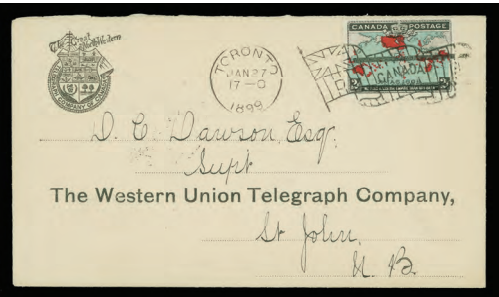 The Great North Western
TELEGRAPH COMPANY OF CANADA
TORONTO
JAN 27
17-0
1899
CANADA POSTAGE
CANADA
D. C. Dawson, Esq.
Supt
The Western Union Telegraph Company,
St John,
N. B.